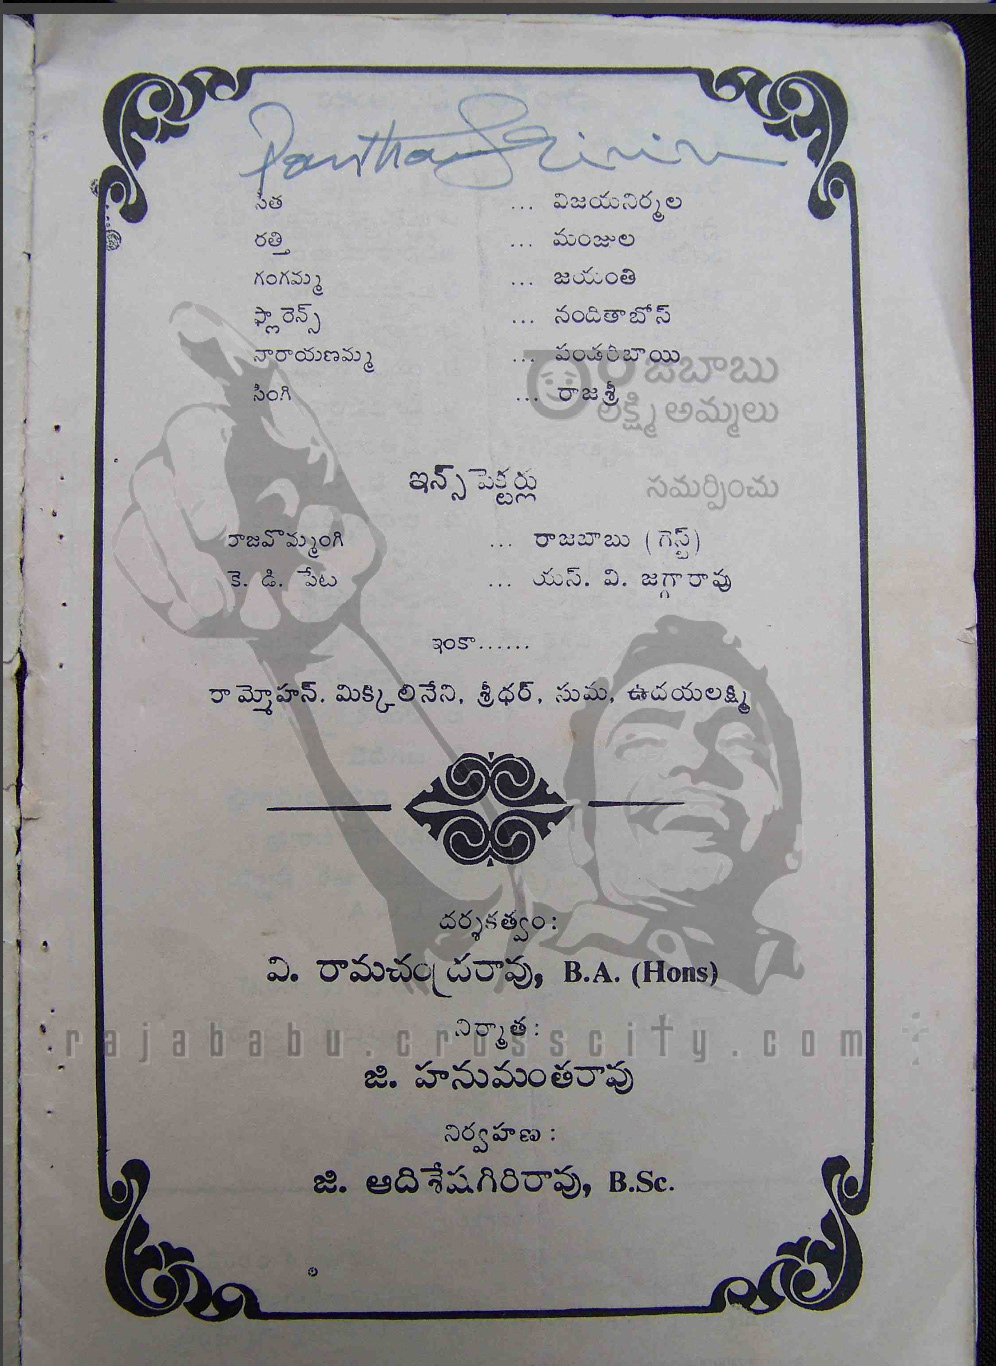 Partha Srinivas
సీత ... విజయనిర్మల
రత్తి ... మంజుల
గంగమ్మ ... జయంతి
ఫ్లారెన్స్ ... నందితాబోస్
నారాయణమ్మ ... పండరీబాయి
సింగి ... రాజశ్రీ
రాజబాబు
లక్ష్మి అమ్మలు
సమర్పించు
ఇన్స్పెక్టర్లు
రాజవొమ్మంగి ... రాజబాబు (గెస్ట్)
కె. డి. పేట ... యస్. వి. జగ్గారావు
ఇంకా......
రామ్మోహన్. మిక్కిలినేని, శ్రీధర్, సుమ, ఉదయలక్ష్మి
దర్శకత్వం:
వి. రామచంద్రరావు, B.A. (Hons)
rajababu.crosscity.com
నిర్మాత:
జి. హనుమంతరావు
నిర్వహణ:
జి. ఆదిశేషగిరిరావు, B.Sc.